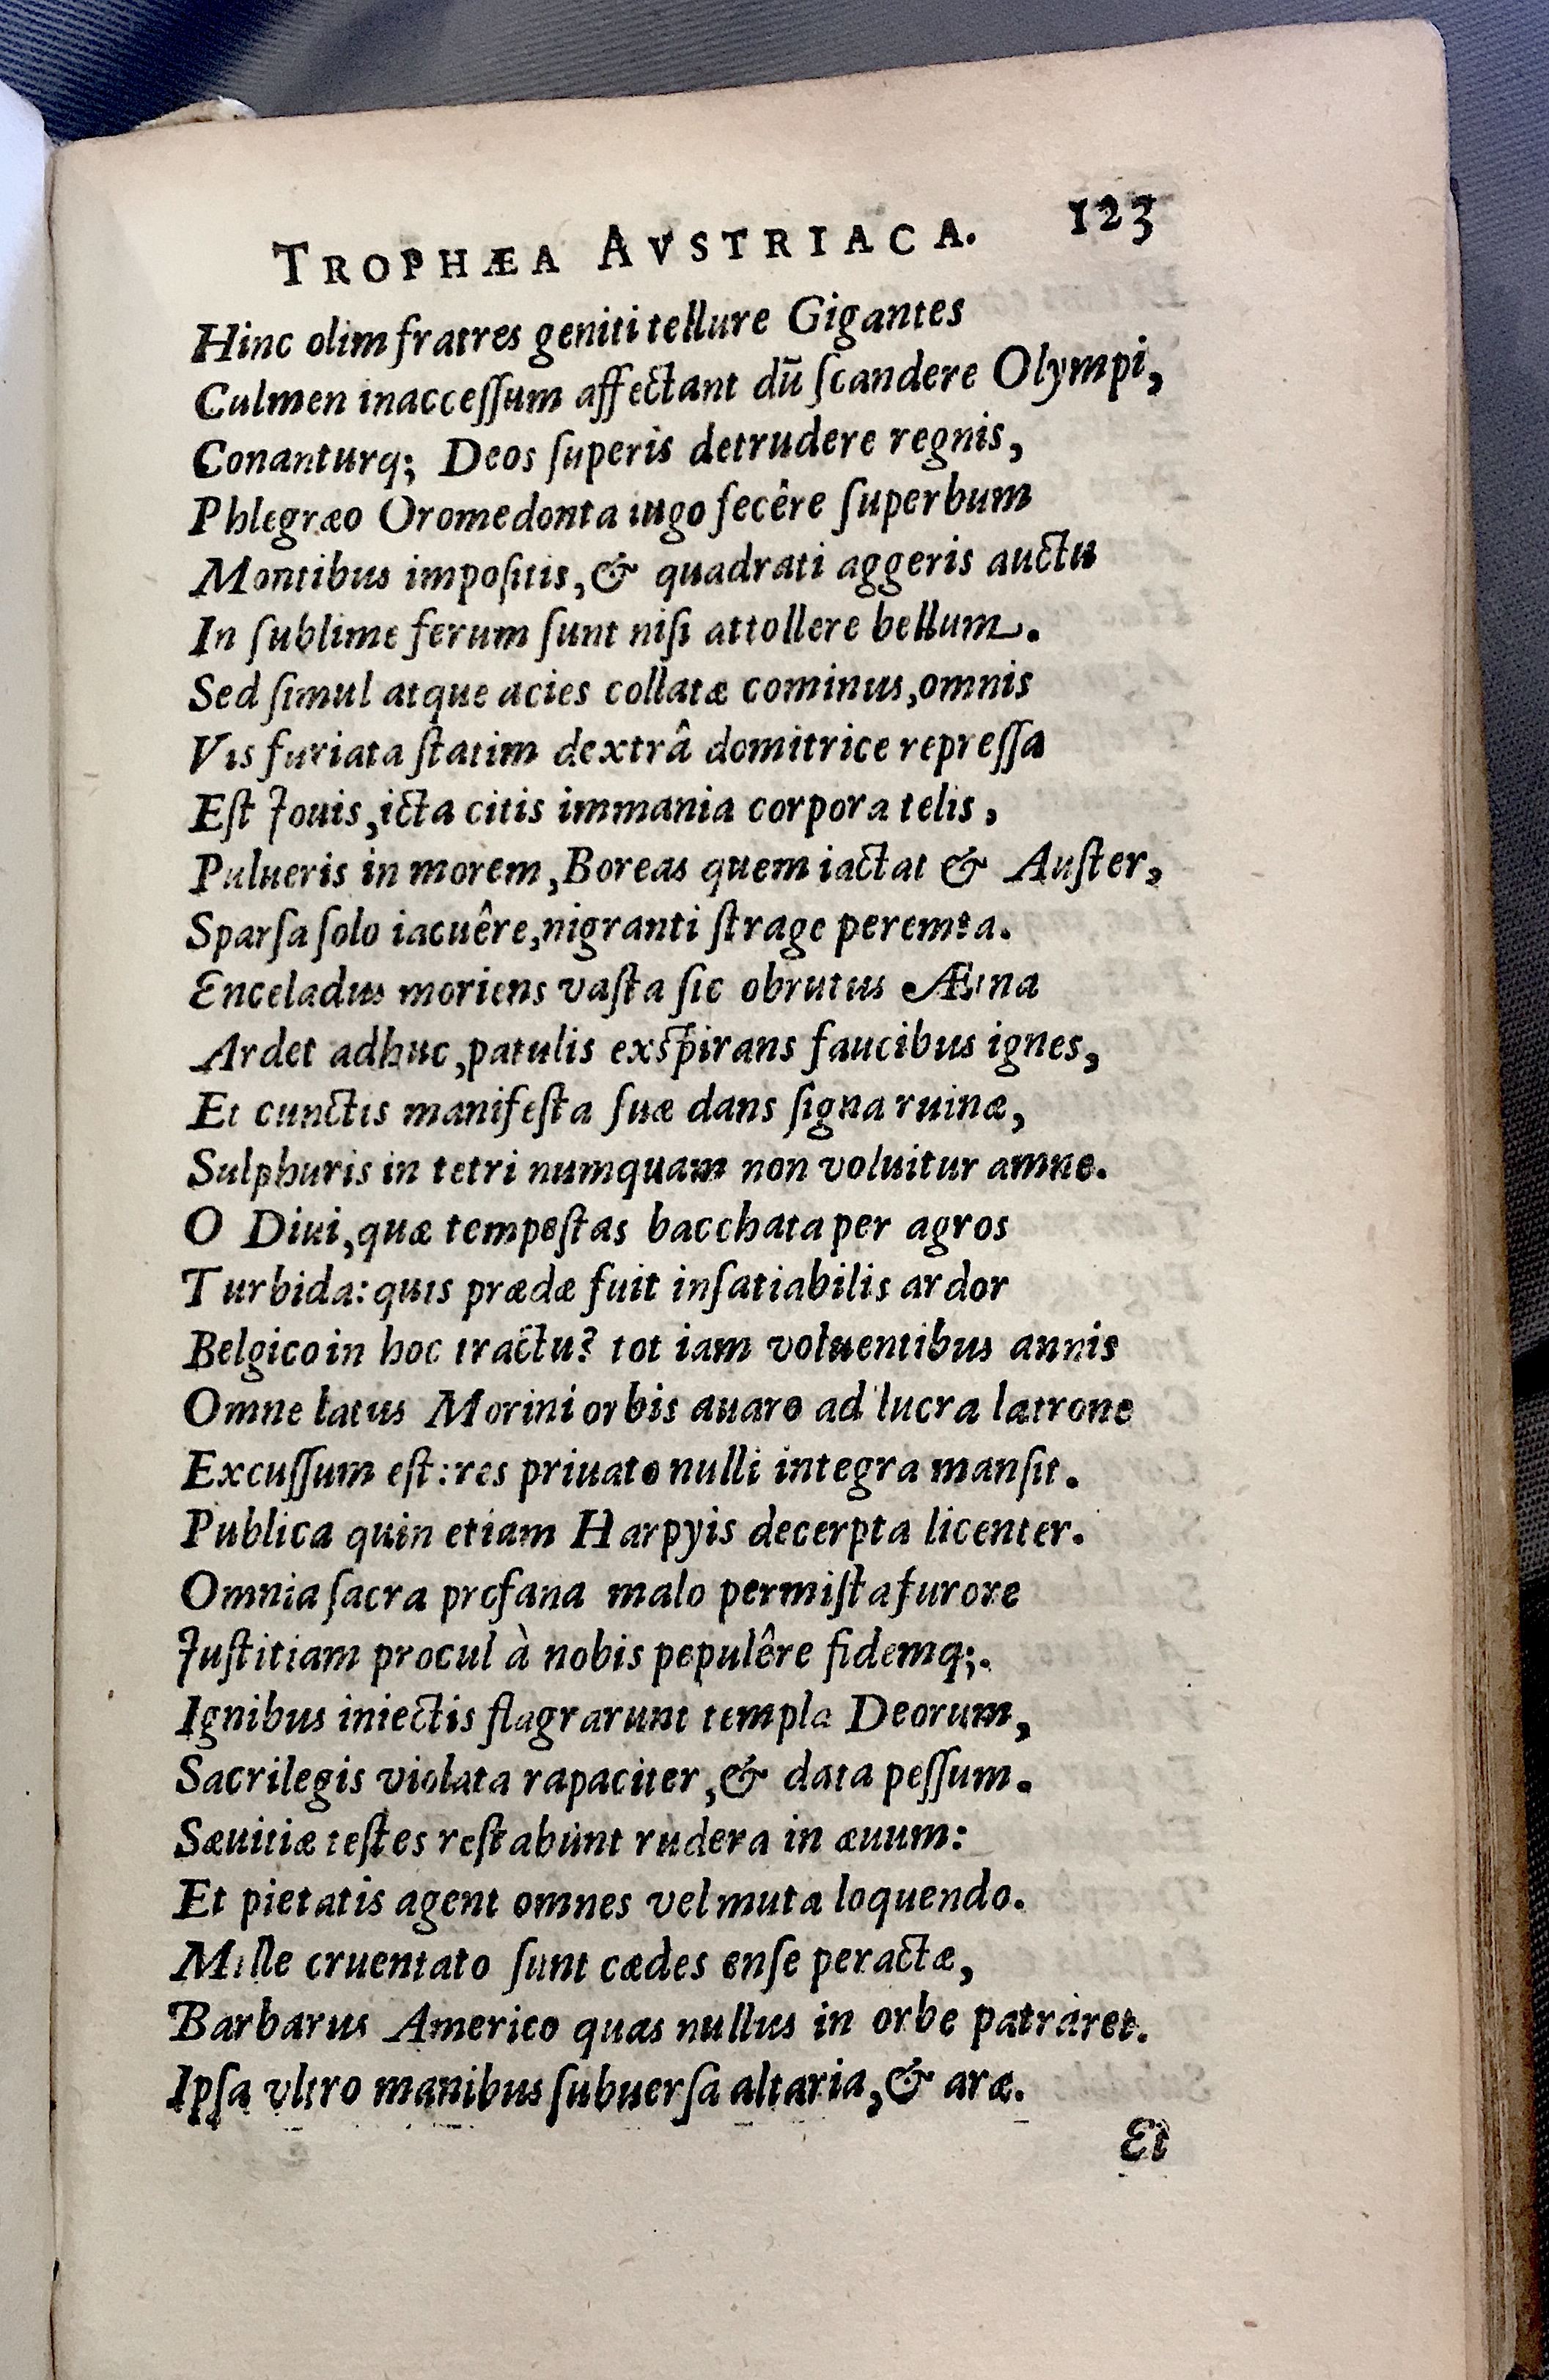 TROPHÆA AVSTRIACA. 123
Hinc olim fratres geniti tellure Gigantes
Culmen inacceſſum affectant dū ſcandere Olympi,
Conanturq; Deos ſuperis detrudere regnis,
Phlegræo Oromedonta iugo fecêre ſuperbum
Montibus impoſitis, & quadrati aggeris auctu
In ſublime ferum ſunt niſi attollere bellum.
Sed ſimul atque acies collatæ cominus, omnis
Vis furiata ſtatim dextrâ domitrice repreſſa
Eſt Iouis, icta citis immania corpora telis,
Pulueris in morem, Boreas quem iactat & Auſter,
Sparſa ſolo iacuêre, nigranti ſtrage peremta.
Enceladus moriens vaſta ſic obrutus Ætna
Ardet adhuc, patulis exſpirans faucibus ignes,
Et cunctis manifeſta ſuæ dans ſigna ruinæ,
Sulphuris in tetri numquam non voluitur amne.
O Diui, quæ tempeſtas bacchata per agros
Turbida: quis prædæ fuit inſatiabilis ardor
Belgico in hoc tractu? tot iam voluentibus annis
Omne latus Morini orbis auaro ad lucra latrone
Excuſſum eſt: res priuato nulli integra manſit.
Publica quin etiam Harpyis decerpta licenter.
Omnia ſacra profana malo permiſta furore
Iuſtitiam procul à nobis pepulêre fidemq;.
Ignibus iniectis flagrarunt templa Deorum,
Sacrilegis violata rapaciter, & data peſſum.
Sæuitiæ teſtes reſtabunt rudera in æuum:
Et pietatis agent omnes vel muta loquendo.
Mille cruentato ſunt cædes enſe peractæ,
Barbarus Americo quas nullus in orbe patraret.
Ipſa vltro manibus ſubuerſa altaria, & aræ.
Et